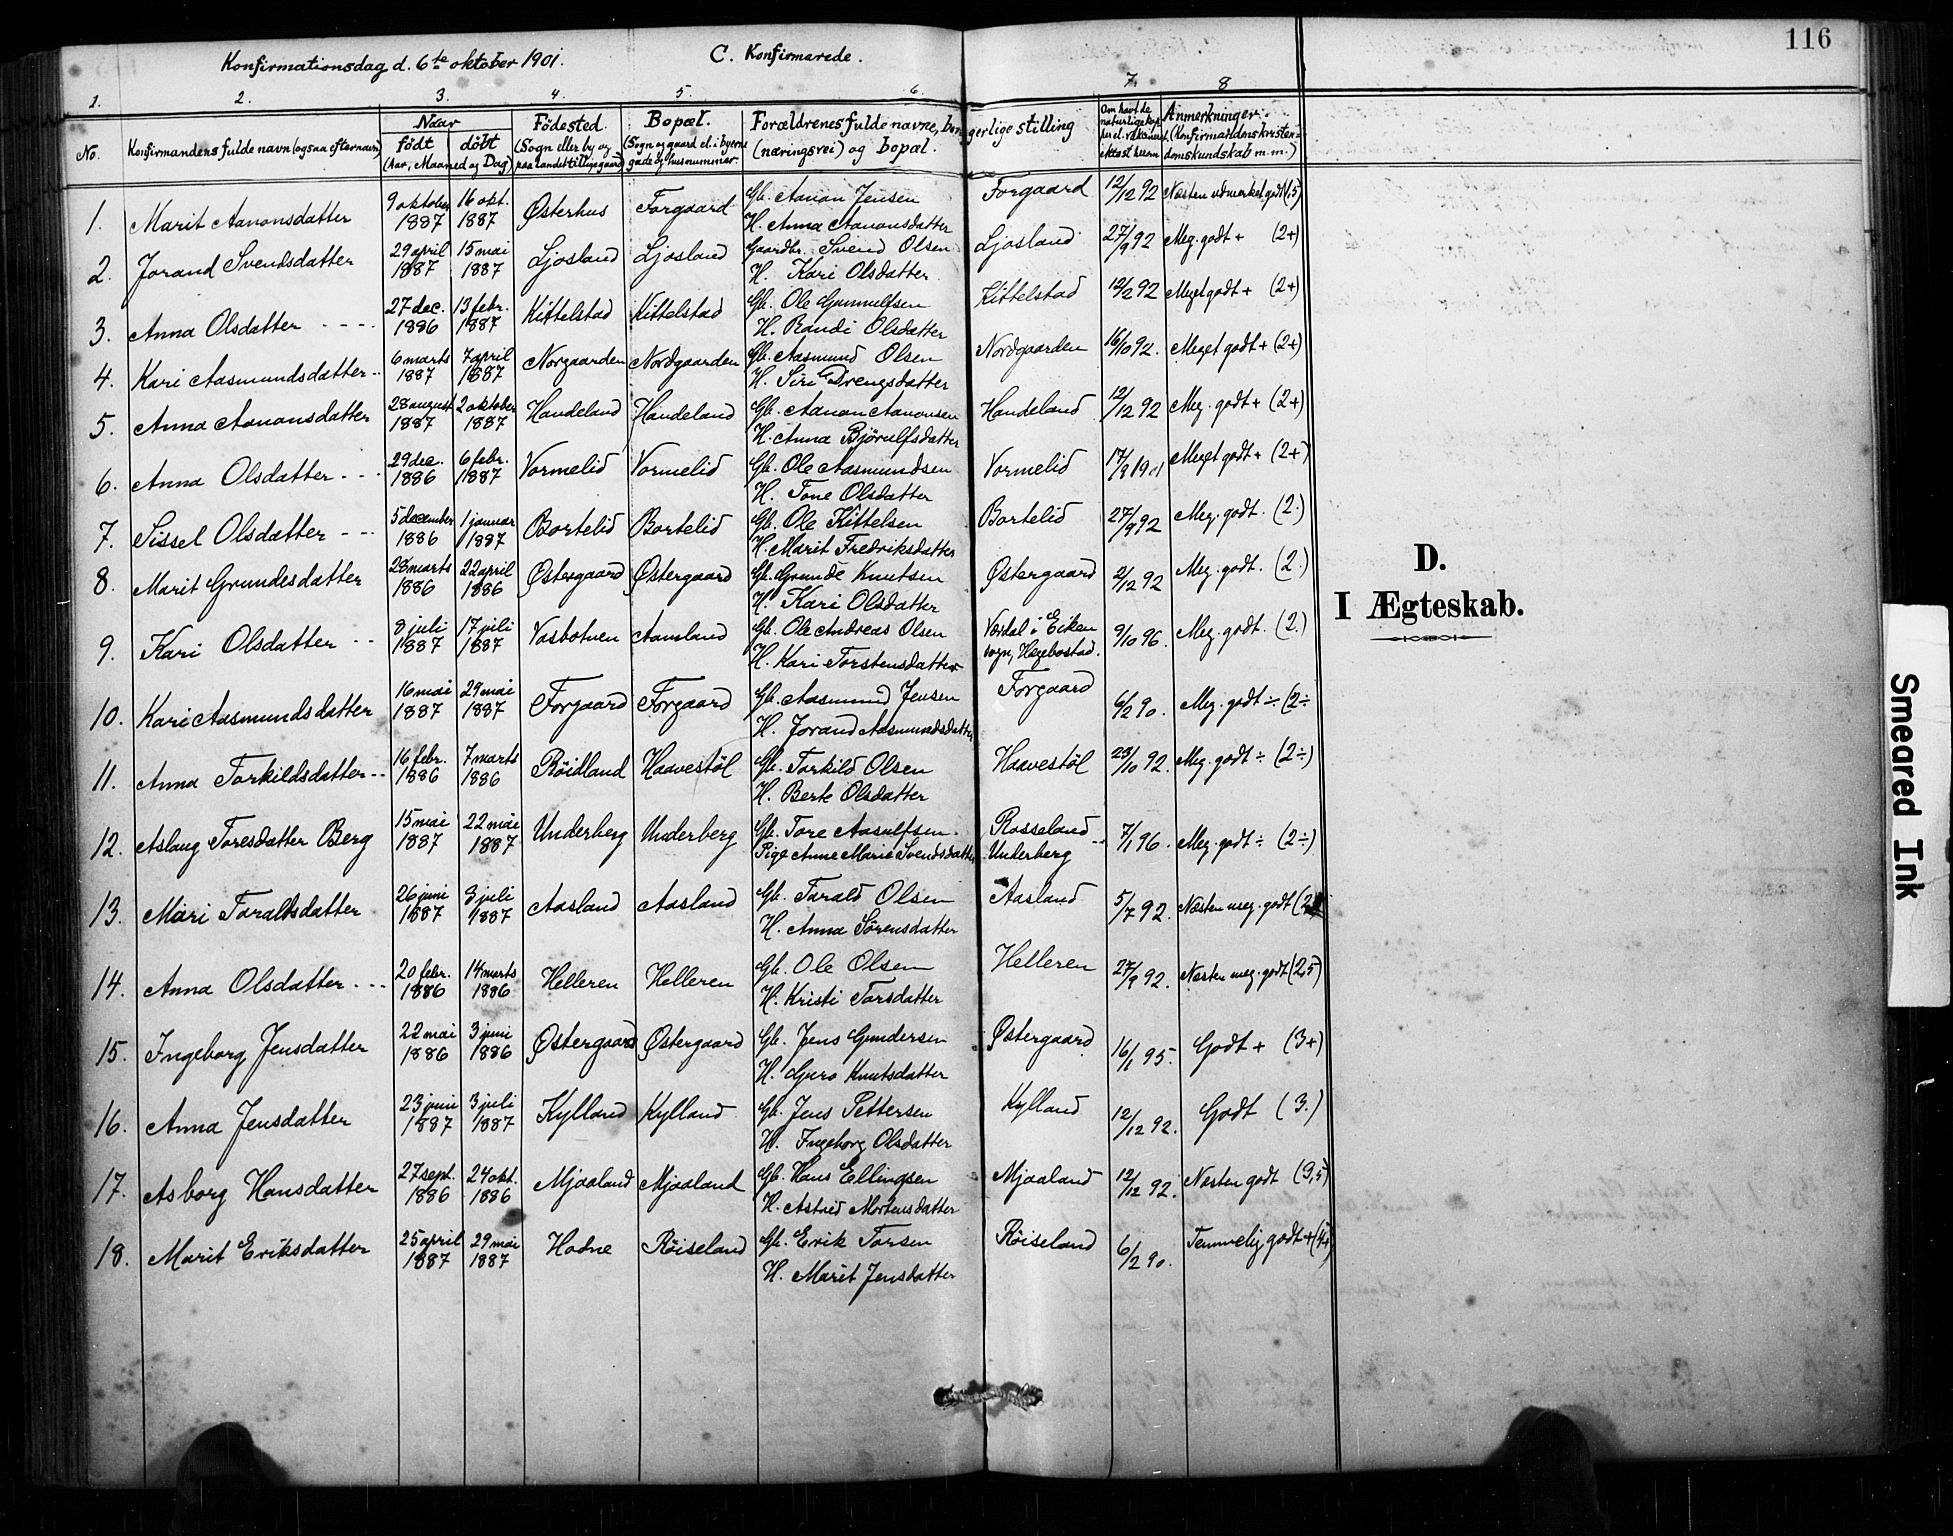 116
Konfirmationsdag d. 6te oktober 1901. C. Konfirmarede.
1. 2. 3. 4. 5. 6. 7. 8
No. Konfirmandens fulde navn (ogsaa efternavn) Naar født døbt (Aar, Maaned og Dag) Fødested (Sogn eller by og paa landet tillige gaard) Bopæl. (Sogn og gaard el. i byerne gade og husnummer. Forældrenes fulde navne, borgerlige stilling (næringsvei) og bopæl. Om havt de naturlige kopper el. vakcineret Anmerkninger. (Konfirmandens kristendomskundskab m.m.)
1. Marit Aanonsdatter 9 oktober 1887 16 okt. 1887 Østerhus Forgaard Gb. Aanon Jensen Forgaard 12/12 92 Næsten udmerket godt (1,5)
H. Anna Aanonsdatter
2. Jorand Svendsdatter 29 april 1887 15 mai 1887 Ljosland Ljosland Gaardbr. Svend Olsen Ljosland 27/9 92 Meg. godt + (2+)
H. Kari Olsdatter
3. Anna Olsdatter 27 dec. 1886 13 febr. 1887 Kittelstad Kittelstad Gb. Ole Gunnulfsen Kittelstad 12/2 92 Meget godt + (2+)
H. Randi Olsdatter
4. Kari Aasmundsdatter 6 marts 1887 7 april 1887 Norgaarden Nordgaarden Gb. Aasmund Olsen Nordgaarden 16/10 92. Meget godt + (2+)
H. Siri Drengsdatter
5. Anna Aanonsdatter 28 august 1887 2 oktober 1887 Haadeland Haadeland Gb. Aanon Aanonsen Haadeland 12/12 92 Meg. godt + (2+)
H. Anna Bjørulfsdatter
6. Anna Olsdatter 29 dec. 1886 6 febr. 1887 Vormelid Vormelid Gb. Ole Aasmundsen Vormelid 17/8 1901 Meget godt + (2+)
H. Tone Olsdatter
7. Sissel Olsdatter 5 december 1886 1 januar 1887 Bortelid Bortelid Gb. Ole Kittelsen Bortelid 27/9 92 Meg. godt. (2.)
H. Marit Fredriksdatter
8. Marit Grundesdatter 28 marts 1886 22 april 1886 Østergaard Østergaard Gb. Grunde Knutsen Østergaard 2/12 92 Meg. godt. (2.)
H. Kari Olsdatter
9. Kari Olsdatter juli 1887 17 juli 1887 Vasbotnen Aamland Gb. Ole Andreas Olsen Verdal i Eiken sogn, Hegebostad. 9/10 96. Meg. godt. (2.)
H. Kari Torstensdatter
10. Kari Aasmundsdatter 16 mai 1887 29 mai 1887 Forgaard Forgaard Gb. Aasmund Jensen Forgaard 6/2 90. Meg. godt ÷ (2÷
H. Jorand Aasmundsdatter
11. Anna Torkildsdatter 16 febr. 1886 7 marts 1886 Røidland Haavestøl Gb. Torkild Olsen Haavestøl 23/10 92. Meg. godt ÷ (2÷)
H. Berte Olsdatter
12. Aslaug Toresdatter Berg 15 mai 1887 22 mai 1887 Underberg Underberg Gb. Tore Aasulfsen. Rosseland 7/1 96. Meg. godt ÷ (2÷)
Pige Anne Marie Svendsdatter Underberg
13. Mari Taraldsdatter 26 juni 1887 3 juli 1887 Aasland Aasland Gb. Tarald Olsen Aasland 5/7 92. Næsten meg. godt (2
H. Anna Sørensdatter
14. Anna Olsdatter 20 febr. 1886 14 marts 1886 Helleren Helleren Gb. Ole Olsen Helleren 27/9 92. Næsten meg. godt (2,5)
H. Kristi Torsdatter
15. Ingeborg Jensdatter 22 mai 1886 3 juni 1886 Østergaard Østergaard Gb. Jens Gundersen Østergaard 16/1 95. Godt + (3+)
H. Guro Knutsdatter
16. Anna Jensdatter 23 juni 1887 3 juli 1887 Kylland Kylland Gb. Jens Pettersen Kylland 12/12 92. Godt (3.)
H. Ingeborg Olsdatter
17. Asborg Hansdatter 27 sept. 1886 24 okt. 1886 Mjaaland Mjaaland Gb. Hans Ellingsen Mjaaland 12/12 92. Næsten godt (3,5)
H. Astrid Mortensdatter
18. Marit Eriksdatter 25 april 1887 29 mai 1887 Hodne Røiseland Gb. Erik Torsen Røiseland 6/2 90. Temmelig godt + (4+)
H. Marit Jensdatter
D.
I Ægteskab.
Smeared Ink